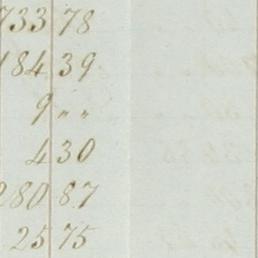 733 78
184 39
9 " "
4 30
280 87
25 75